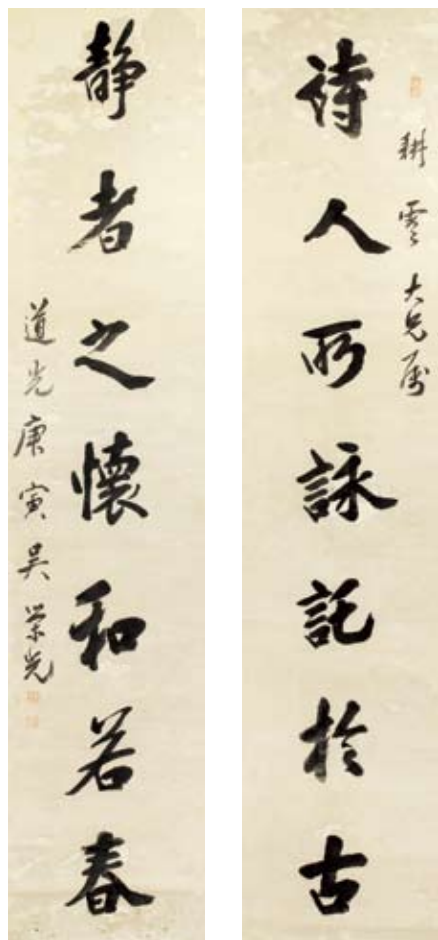 耕雲大兄屬
詩人所詠託於古
靜者之懷和若春
道光庚寅吳榮光